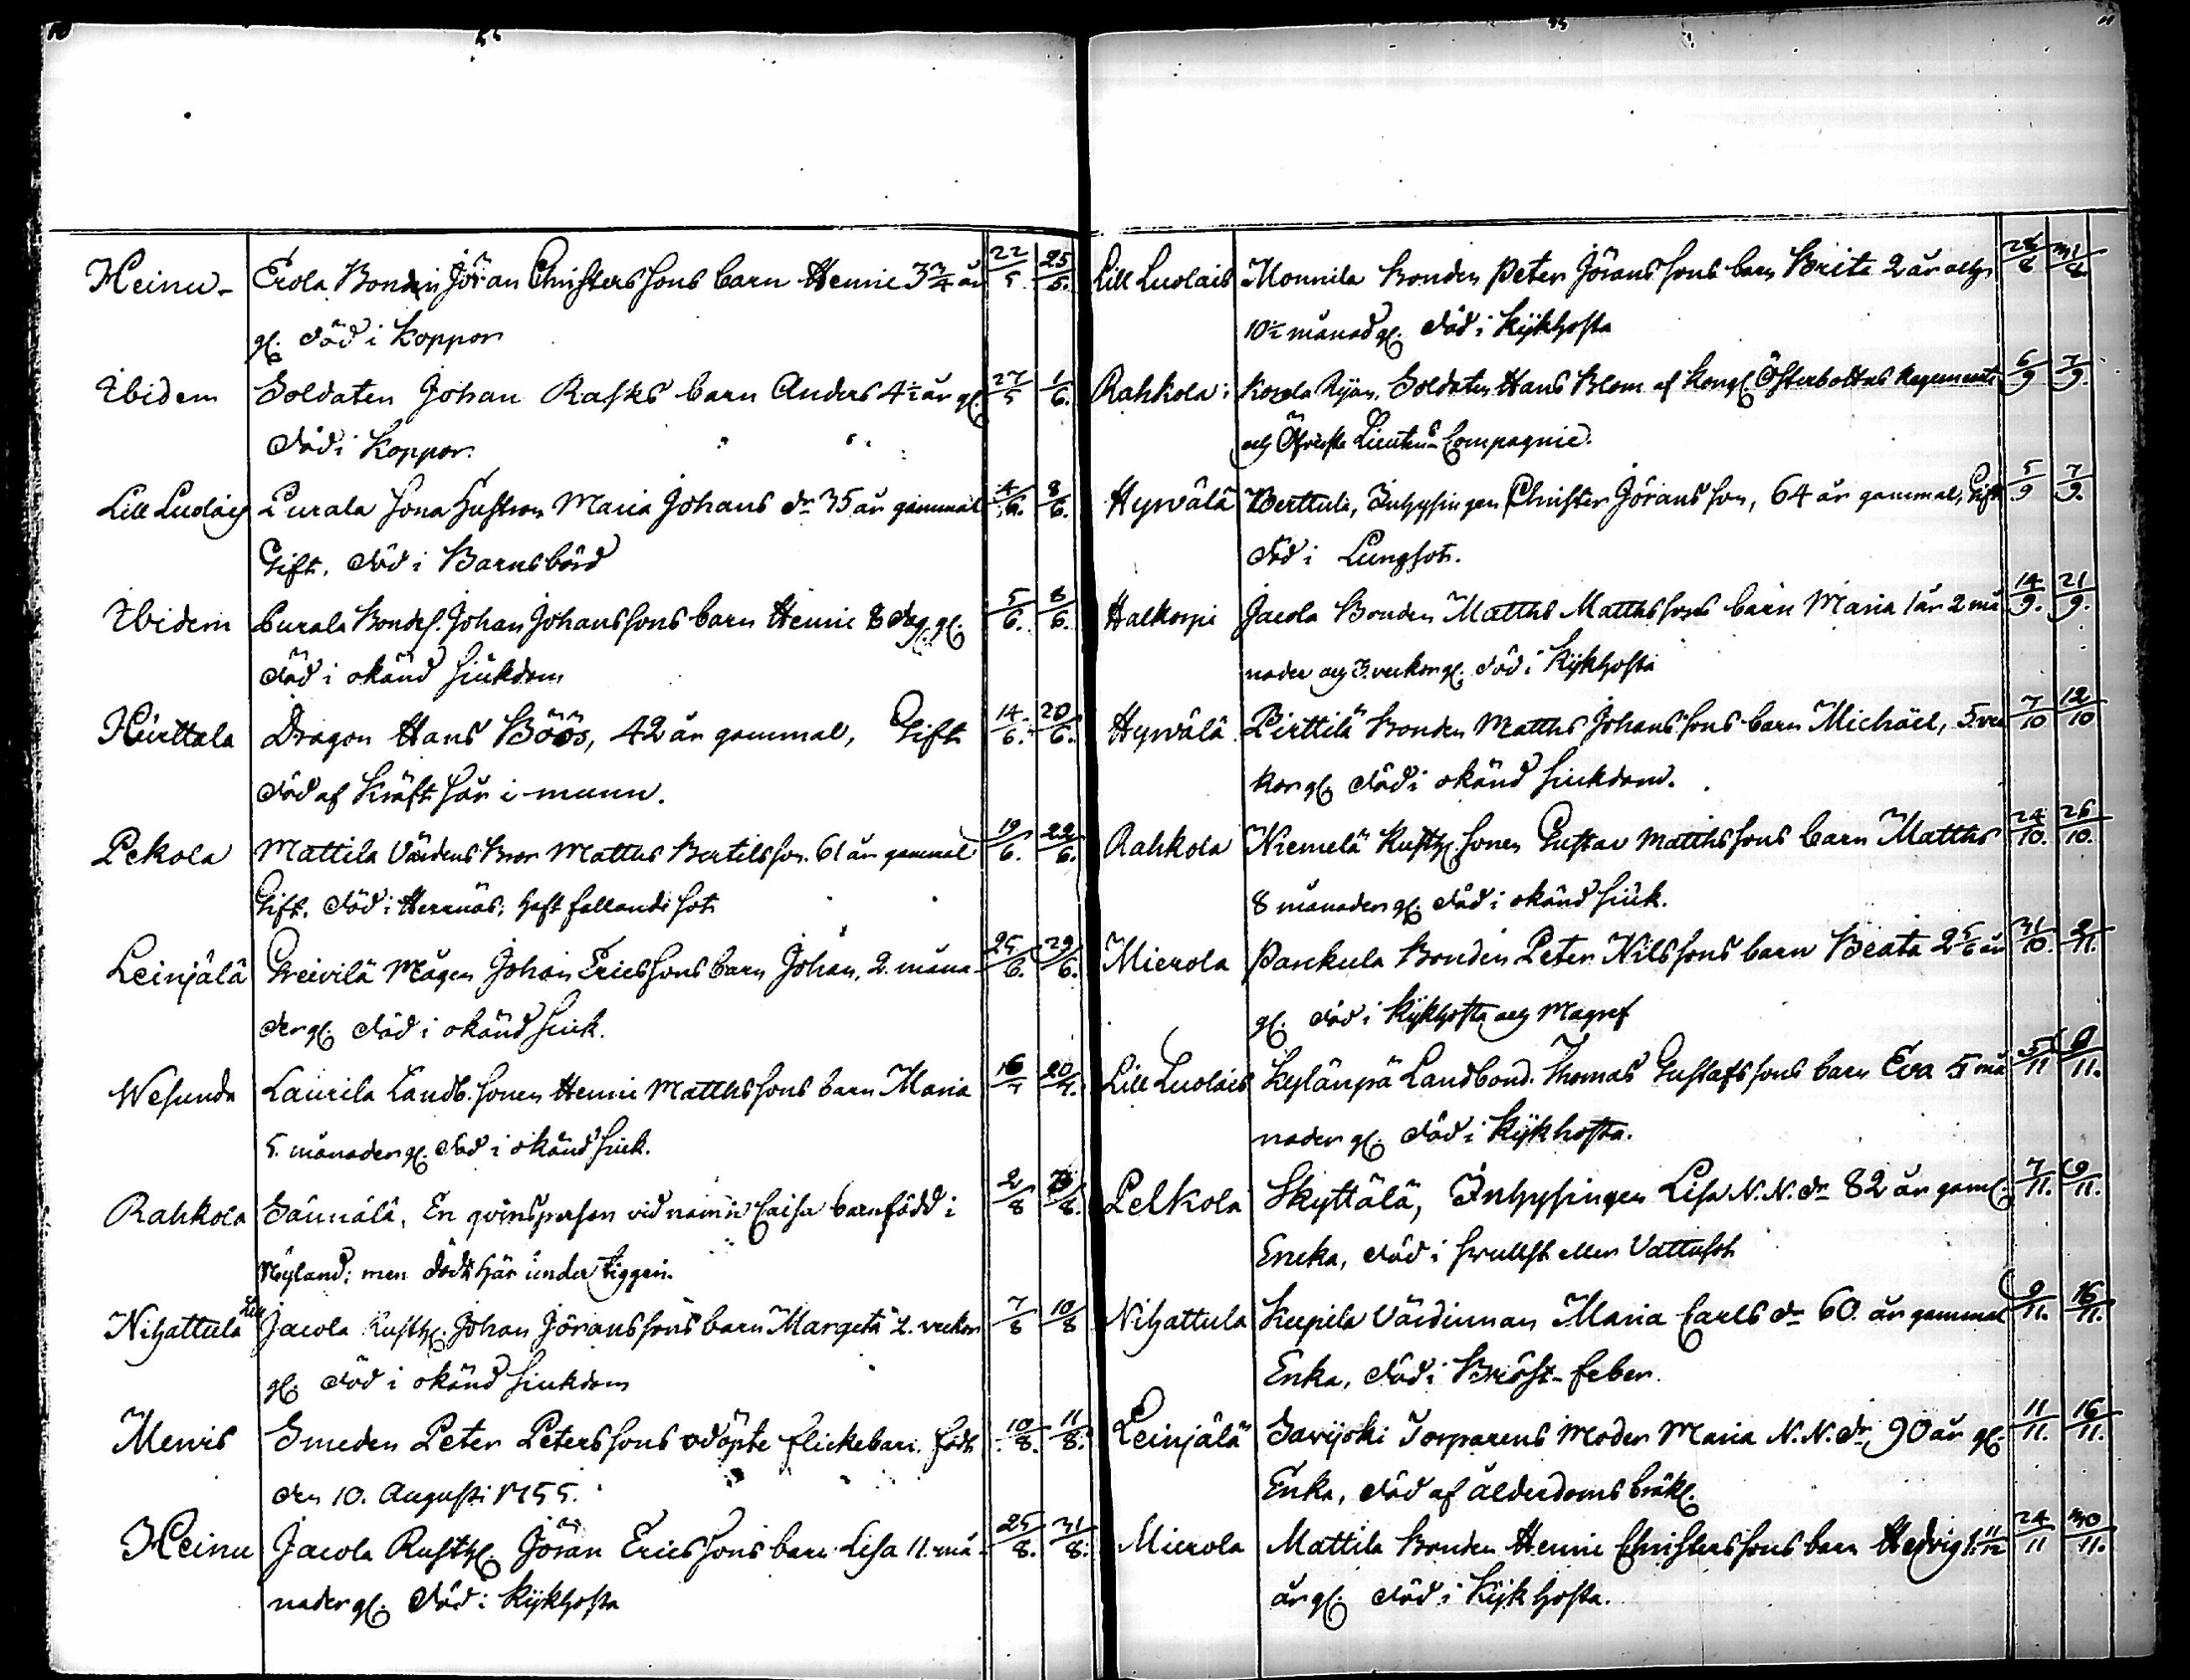 10
55
Heinu- Erola Bonden Jöran Christerssons barn Henric 3 3/4 år 22/5 25/5.
gl. död i Koppor
Ibidem Soldaten Johan Rasks barn Anders 4 1/2 år gl. 27/5 1/6.
död i Koppor.
Lill Luolais Purala sona hustron Maria Johans dr 35 år gammal 4/6. 8/6.
Gift. död i Barnsbörd
Ibidem Purala Bonds. Johan Johanssons barn Henric 8 dag. gl. 5/6. 8/6.
död i okänd siukdom
Hurttala Dragon Hans Böös, 42 år gammal, Gift 14/6. 20/6.
död af Kräft sår i munn.
Pekola Mattila Värdens Bror Matths Bertilsson. 61 år gammal 19/6. 22/6.
Gift. död i Herrnäs; haft fallandi sot
Leinjälä Greivilä Mågen Johan Ericssons barn Johan, 2. måna- 25/6. 29/6.
der gl. död i okänd siuk.
Wesunda Laurila Landb. sonen Henric Matthssons barn Maria 16/7 20/7.
5. månader gl. död i okänd siuk.
Rahkola En qvinsperson vid namn Caisa barnfödd i 2/8 /8.
Nyland; men död här under tiggeri.
Nihattula Lill Jacola Rusth. Johan Jöranssons barn Margeta 2. veckor 7/8 10/8
gl. död i okänd siukdom
Mervis Smeden Peter Peterssons odöpte flickebarn. född 10/8. 11/8.
den 10. Augusti 1755.
Heinu Jacola Rusth. Jöran Ericssons barn Lisa 11. må- 25/8. 31/8.
nader gl. död i Kijkhosta
55
11
Lill Luolais Monnila Bonden Peter Jöranssons barn Brita 2 år och 28/8 31/8
10 1/2 månad gl. död i Kijkhosta
Rahkola: Soldaten Hans Blom af Kongl. Österbottns Regemente 6/9 7/9.
och Öfverste Lieutens Compagnie.
Hyrvälä Berttula, Inhysingen Christer Jöransson, 64 år gammal, Gift 5/9 7/9.
död i Lungsot.
Halkorpi Jacola Bonden Matths Matthssons barn Maria 1 år 2 må 14/9. 21/9.
nader och 3. veckor gl. död i Kijkhosta
Hyrvälä Pirttilä Bonden Matths Johanssons barn Michäel, 5. vec 7/10 12/10
kor gl. död i okänd siukdom.
Rahkola Niemelä Rusth. sonen Gustav Matthssons barn Matths 24/10. 26/10.
8 månader gl. död i okänd siuk.
Mierola Panckula Bonden Peter Nilssons barn Beata 2 5/6 år 31/10. 2/11.
gl. död i Kijkhosta och Magref
Lill Luolais Kylänpä Landbond. Thomas Gustafssons barn Eva 5 må 5/11 9/11.
nader gl. död i Kijkhosta.
Pelkola Skyttälä, Inhysingen Lisa N. N. dr 82 år gaml. 7/11. 9/11.
Encka, död i svullst eller Vattusot
Nihattula Keepila Värdinnan Maria Carls dr 60. år gammal 9/11. 16/11.
Enka, död i Bröst-feber.
Leinjälä Savijoki Torparens Moder Maria N. N. dr, 90 år gl. 11/11. 16/11.
Enka, död af ålderdoms bräkl.
Mierola Mattila Bonden Henric Christerssons barn Hedvig 1 11/12 24/11 30/11.
år gl. död i Kijkhosta.